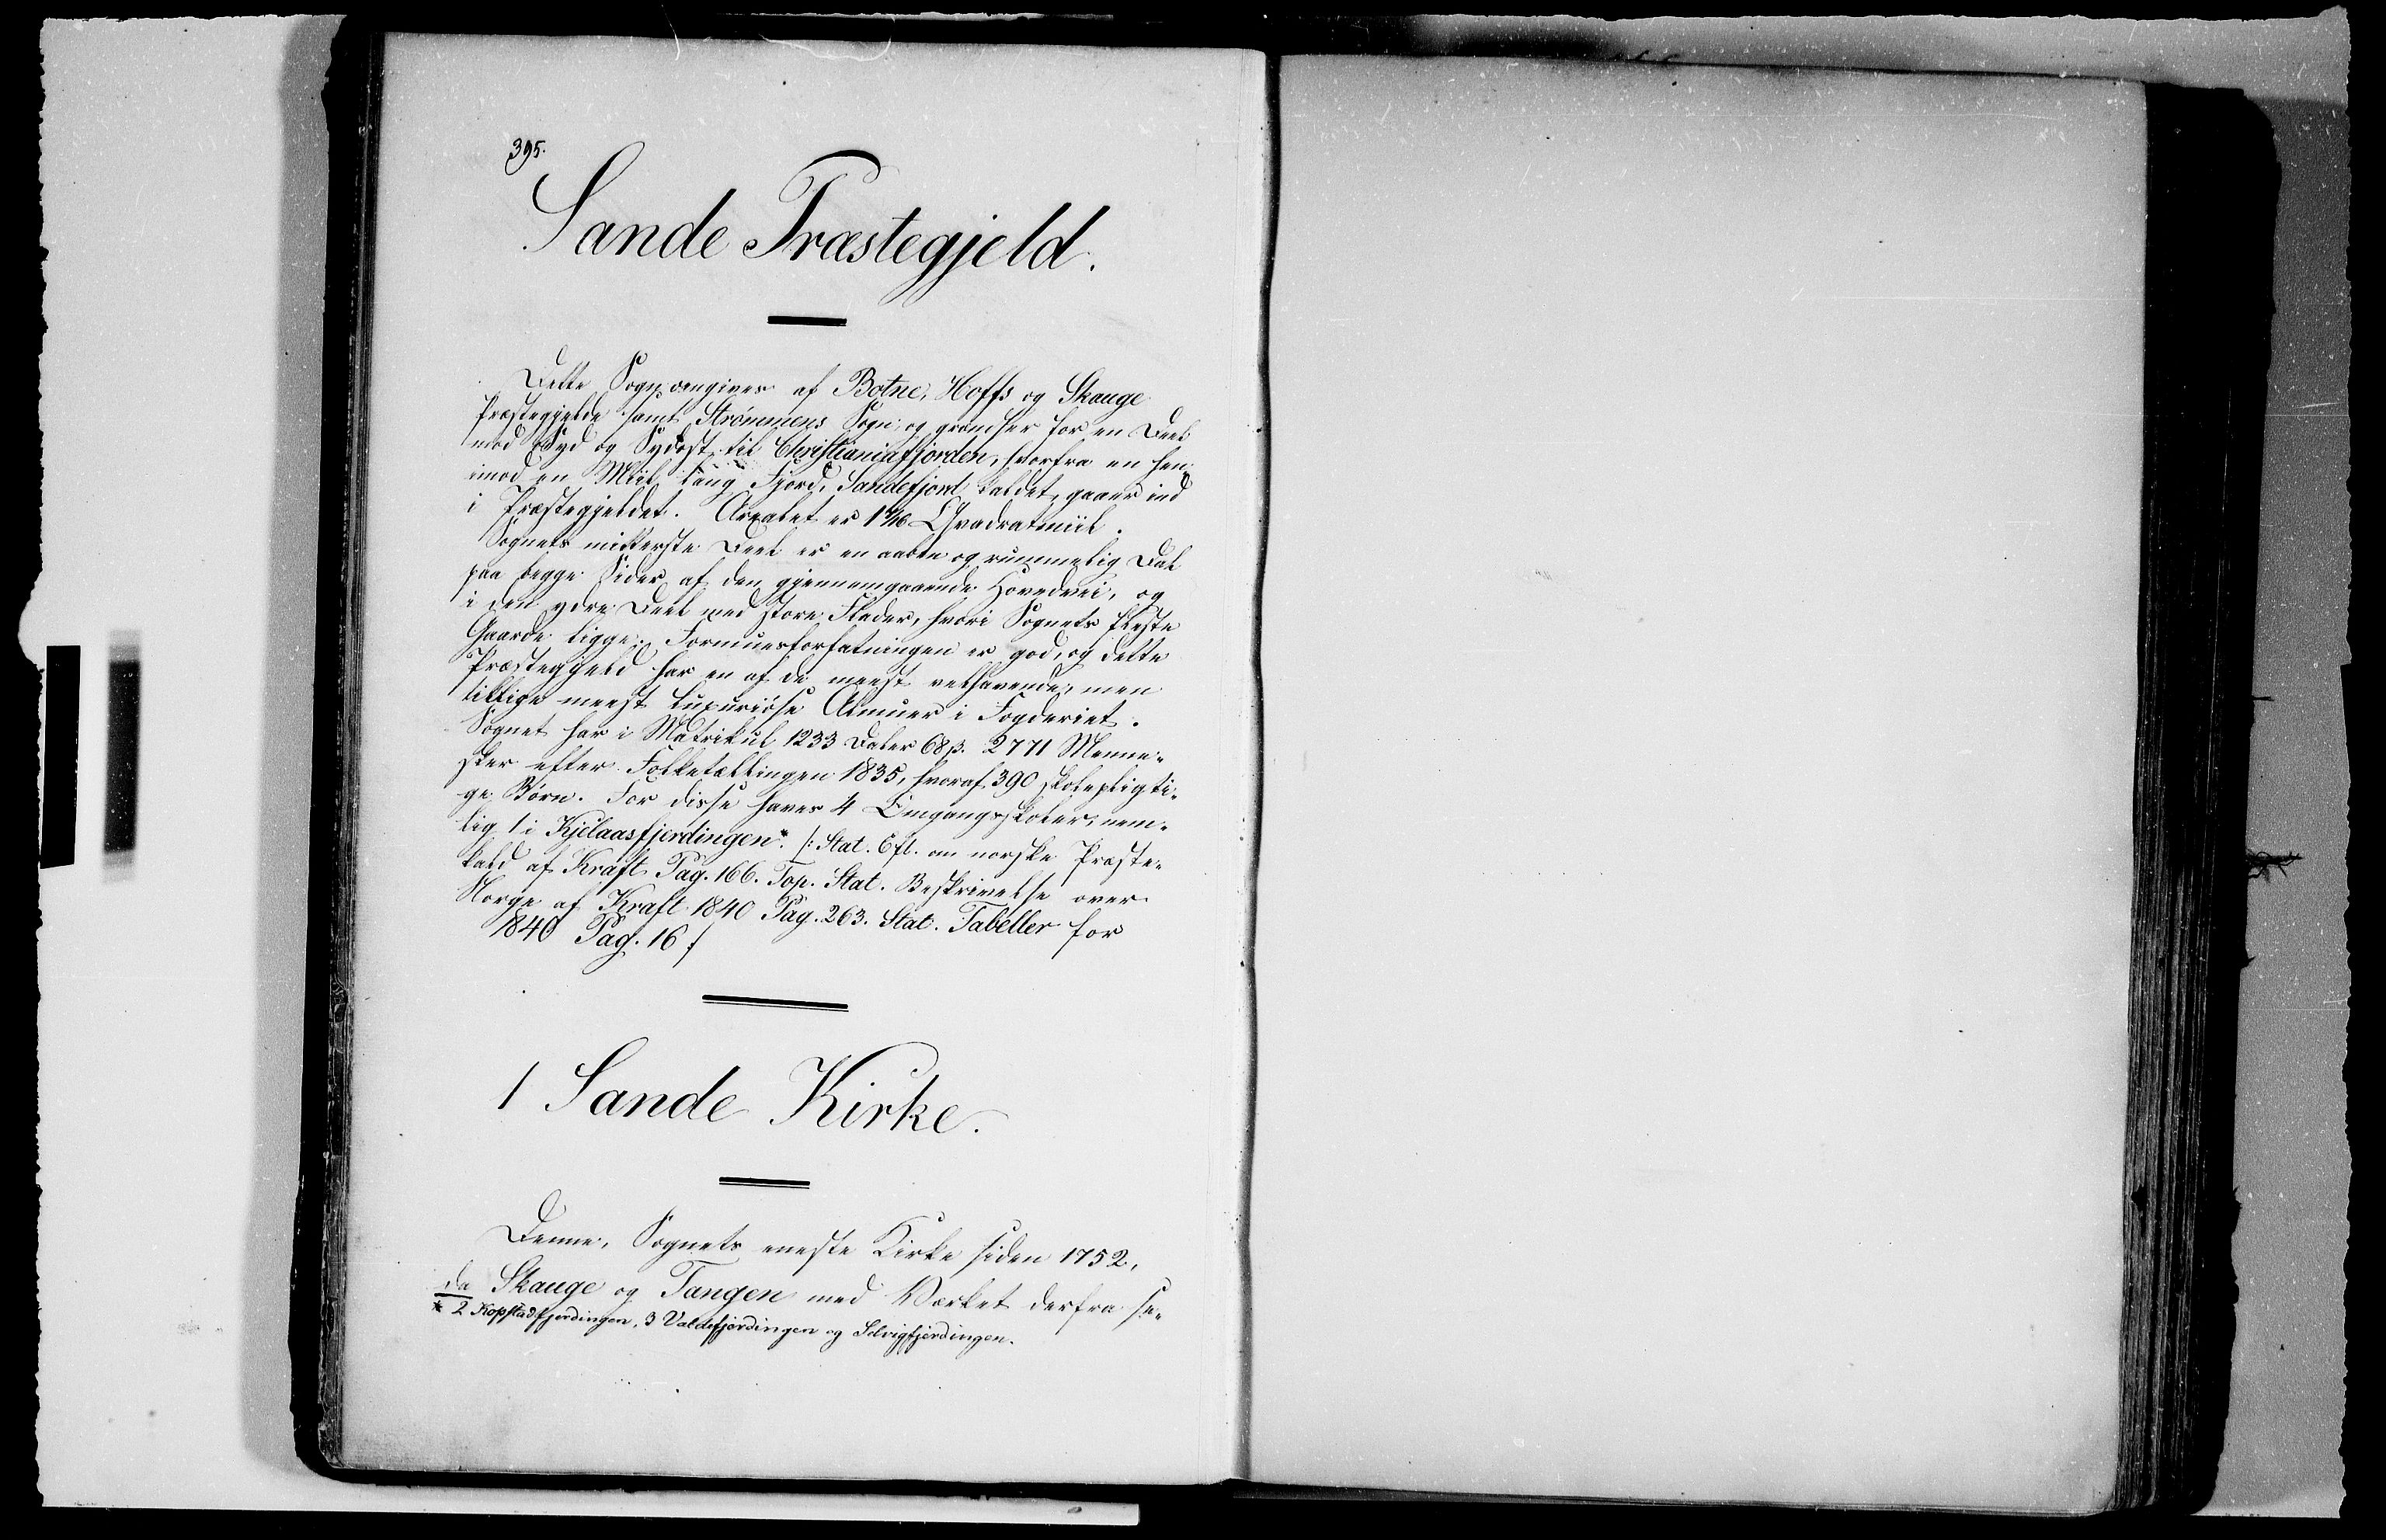 395.
Sande Præstegjeld.
Dette Sogn omgives af Botne, Hoffs og Skauge
Præstegjelde samt Strømmens Sogn, og grændser for en Deel
mod Syd og Sydost til Christianiafjorden, hvorfra en hen-
imod en Miil lang Fjord, Sandefjord kaldet, gaaer ind
i Præstegjeldet. Arealet er 1 1/16 Qvadratmiil.
Sognets midterste Deel er en aaben og rummelig Dal
paa begge Sider af den gjennemgaaende Hovedvei, og
i den ydre Deel med store Flader, hvori Sognets fleste
Gaarde ligge. Formuesforfatningen er god, og dette
Præstegjeld har en af de meest velhavende, men
tillige meest luxuriøse Almuer i Fogderiet.
Sognet har i Matrikul 1233 Daler 68 β. 2771 Menne-
sker efter Folketællingen 1835, hvoraf 390 skolepligti-
ge Børn. For disse haves 4 Omgangsskoler, nem-
lig 1 i Kjelaasfjerdingen* /: Stat. Efl. om norske Præste-
kald af Kraft Pag. 166. Top. Stat. Beskrivelse over
Norge af Kraft 1840 Pag. 263. Stat. Tabeller for
1840 Pag. 16 /
1 Sande Kirke.
Denne, Sognets eneste Kirke siden 1752,
da Skauge og Tangen med Værket derfra se-
* 2 Kopstadfjerdingen, 3 Valdefjerdingen og Selvigfjerdingen.